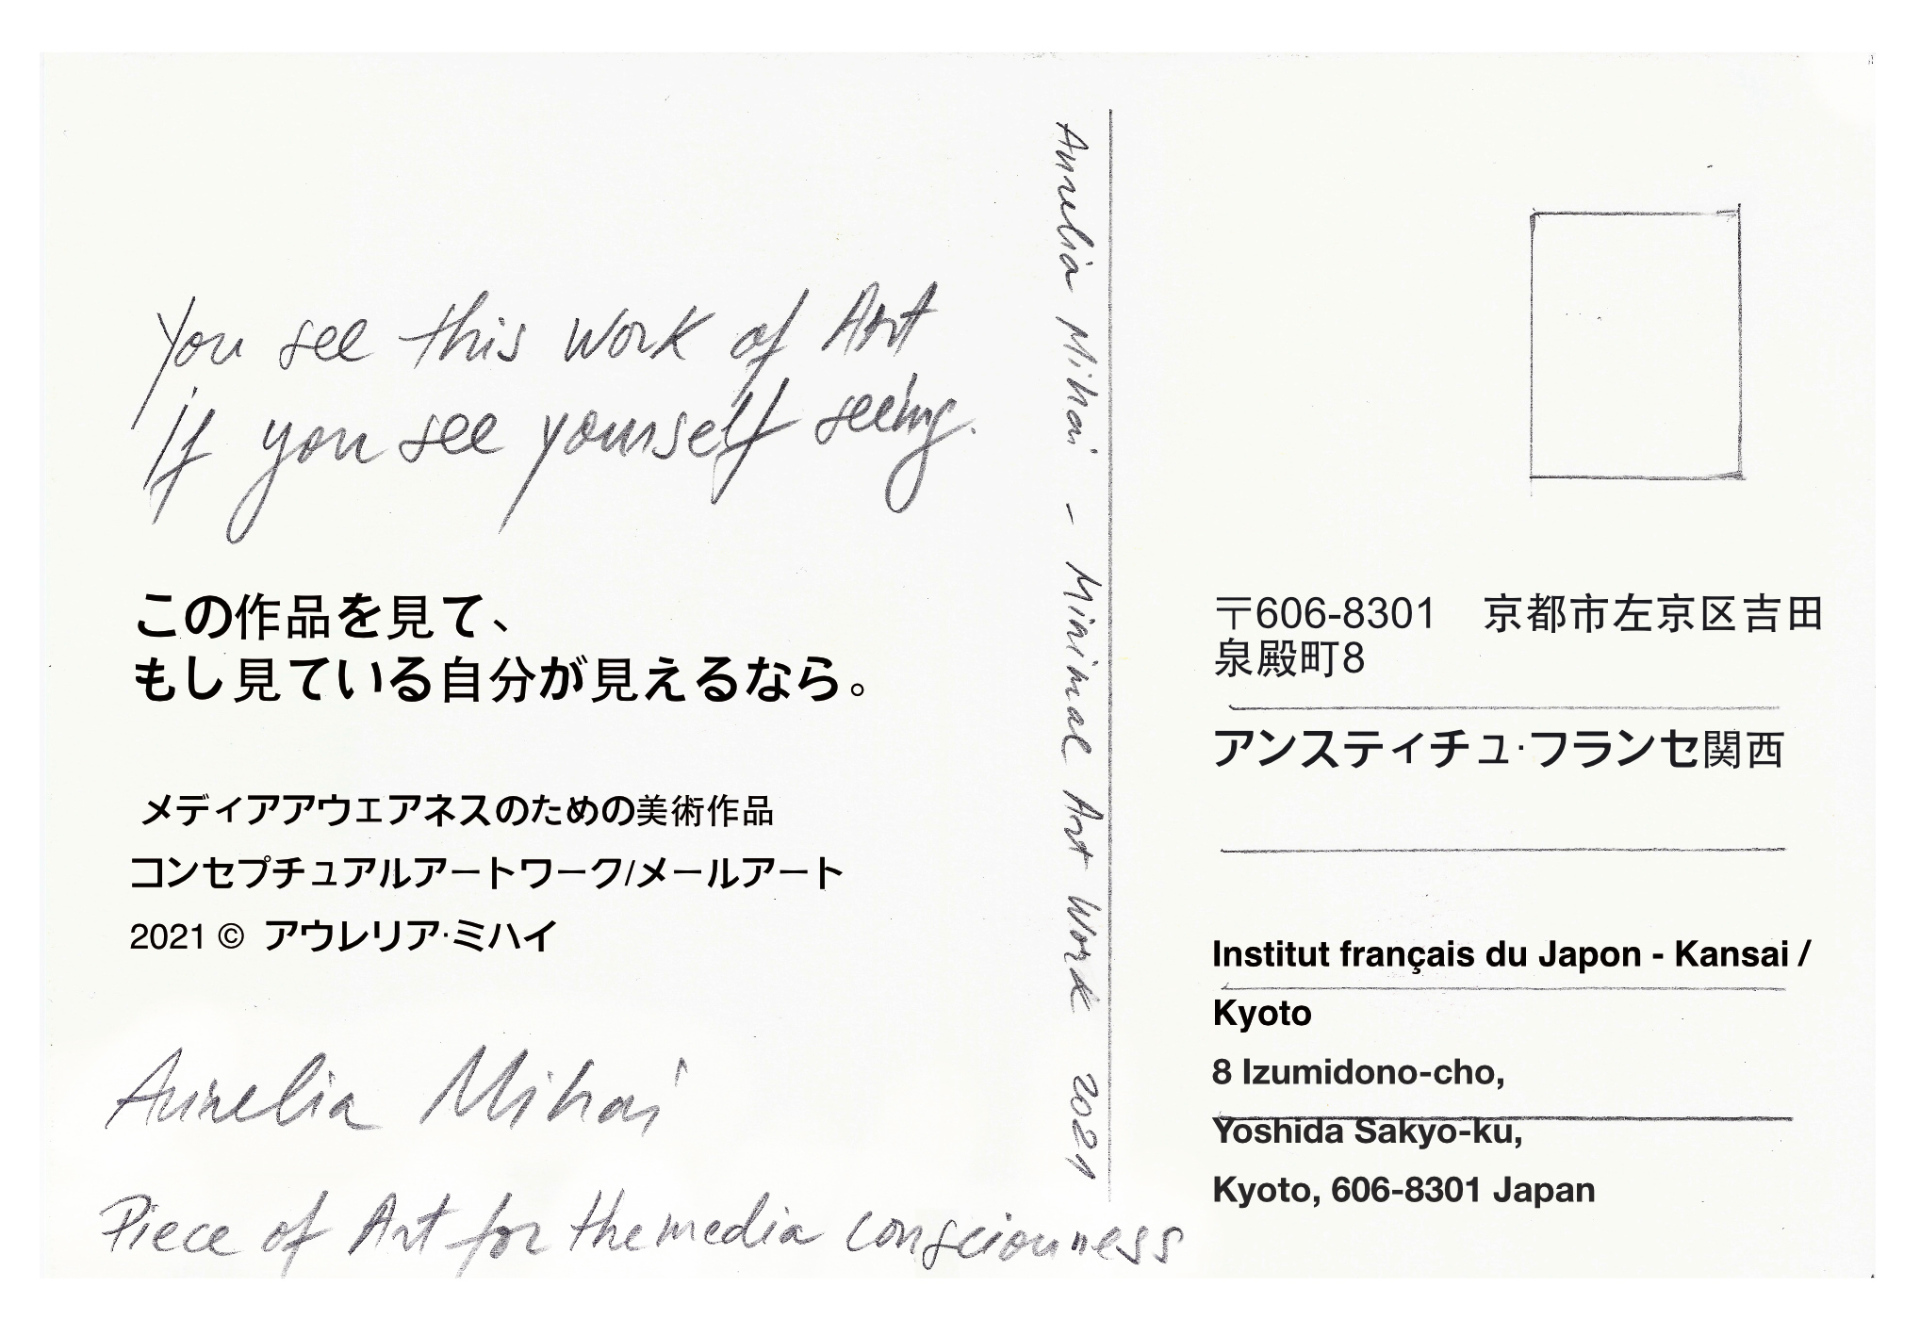 You see this work of Art
if you see yourself seeing.
この作品を見て、
もし見ている自分が見えるなら。
メディアアウェアネスのための美術作品
コンセプチュアルアートワーク/メールアート
2021 © アウレリア·ミハイ
Aurelia Mihai
Piece of Art for the media consciouness
Aurelia Mihai - Minimal Art Work 2021
〒606-8301 京都市左京区吉田
泉殿町8
アンスティチュ·フランセ関西
Institut français du Japon - Kansai /
Kyoto
8 Izumidono-cho,
Yoshida Sakyo-ku,
Kyoto, 606-8301 Japan